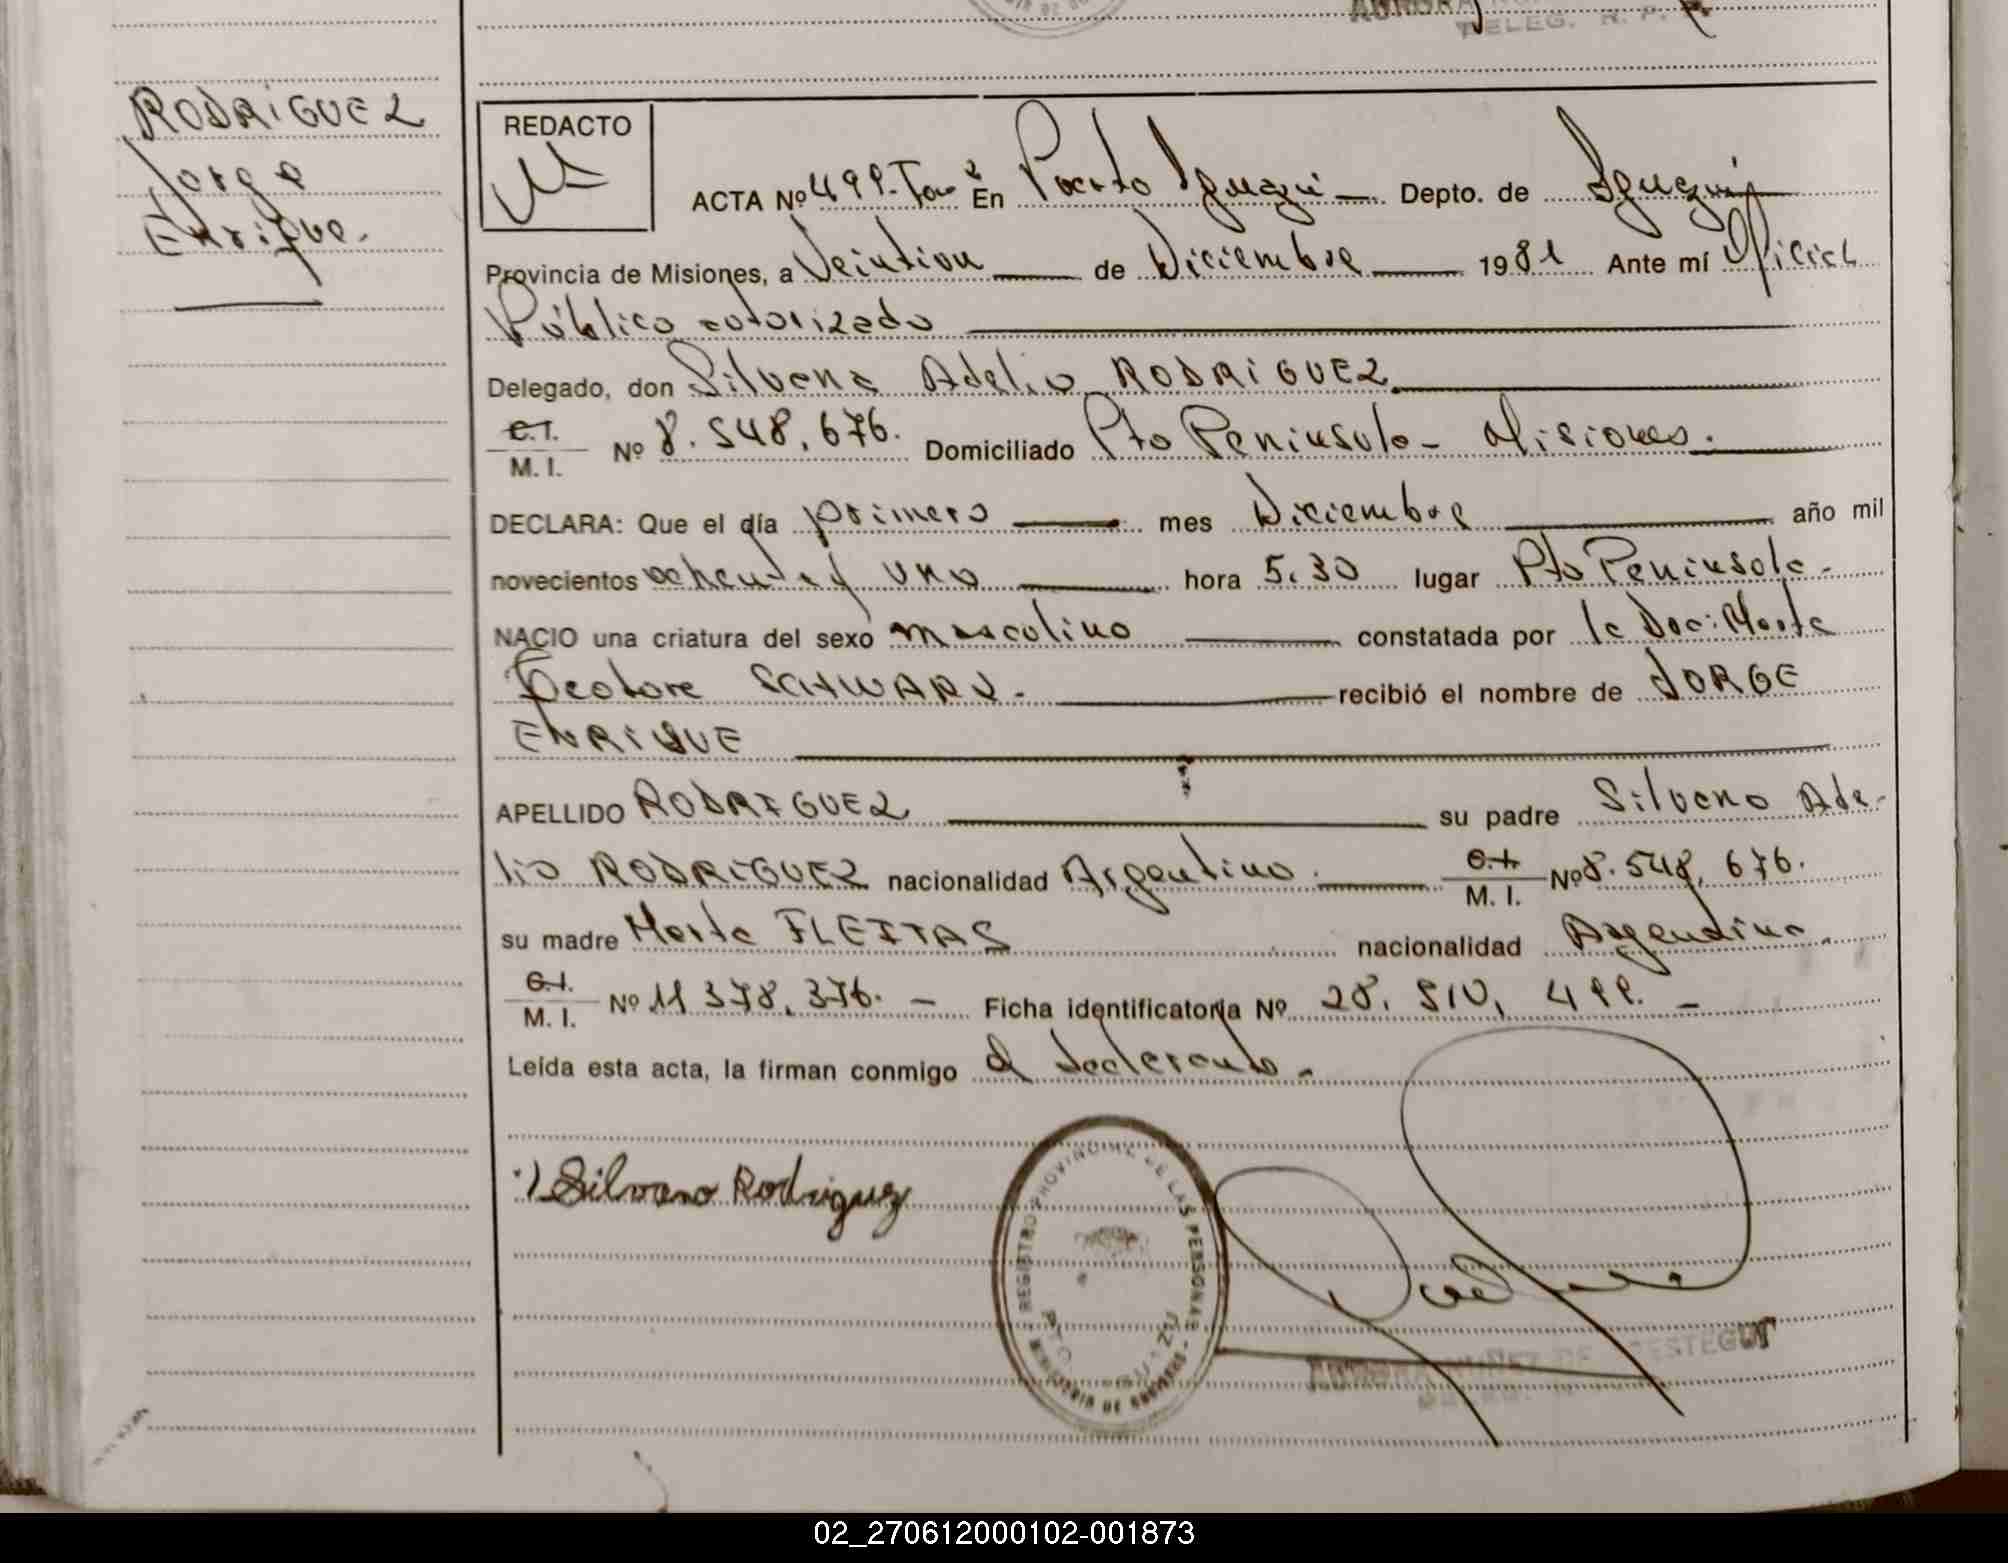 DELEG. R. P.
RODRIGUEZ
Jorge
Enrique.
REDACTO
ACTA Nº 499- Tom 2 En Puerto Iguazú Depto. de Iguazú
Provincia de Misiones, a Veintiun de Diciembre 1981 Ante mí Oficial
Público autorizado
Delegado, don Silvano Adelio RODRIGUEZ
C.I. M. I. Nº 8.548.676. Domiciliado Pto Peninsula - Misiones.
DECLARA: Que el día primero mes Diciembre año mil
novecientos ochenta y uno hora 5.30 lugar Pto Peninsula -
NACIO una criatura del sexo masculino constatada por la Doc: Marta
SCHWARZ - recibió el nombre de JORGE
ENRIQUE
APELLIDO RODRIGUEZ su padre Silvano Ade-
lio RODRIGUEZ nacionalidad Argentino. C.I. M. I. Nº 8.548.676.
su madre Marta FLEITAS nacionalidad Argentina.
C.I. M. I. Nº 11 378.376. - Ficha identificatoria Nº 28. 499. -
Leída esta acta, la firman conmigo el declarante -
Silvano Rodriguez
REGISTRO PROVINCIAL DE LAS PERSONAS
MINISTERIO DE GOBIERNO
AURORA NUÑEZ DE
02_270612000102-001873